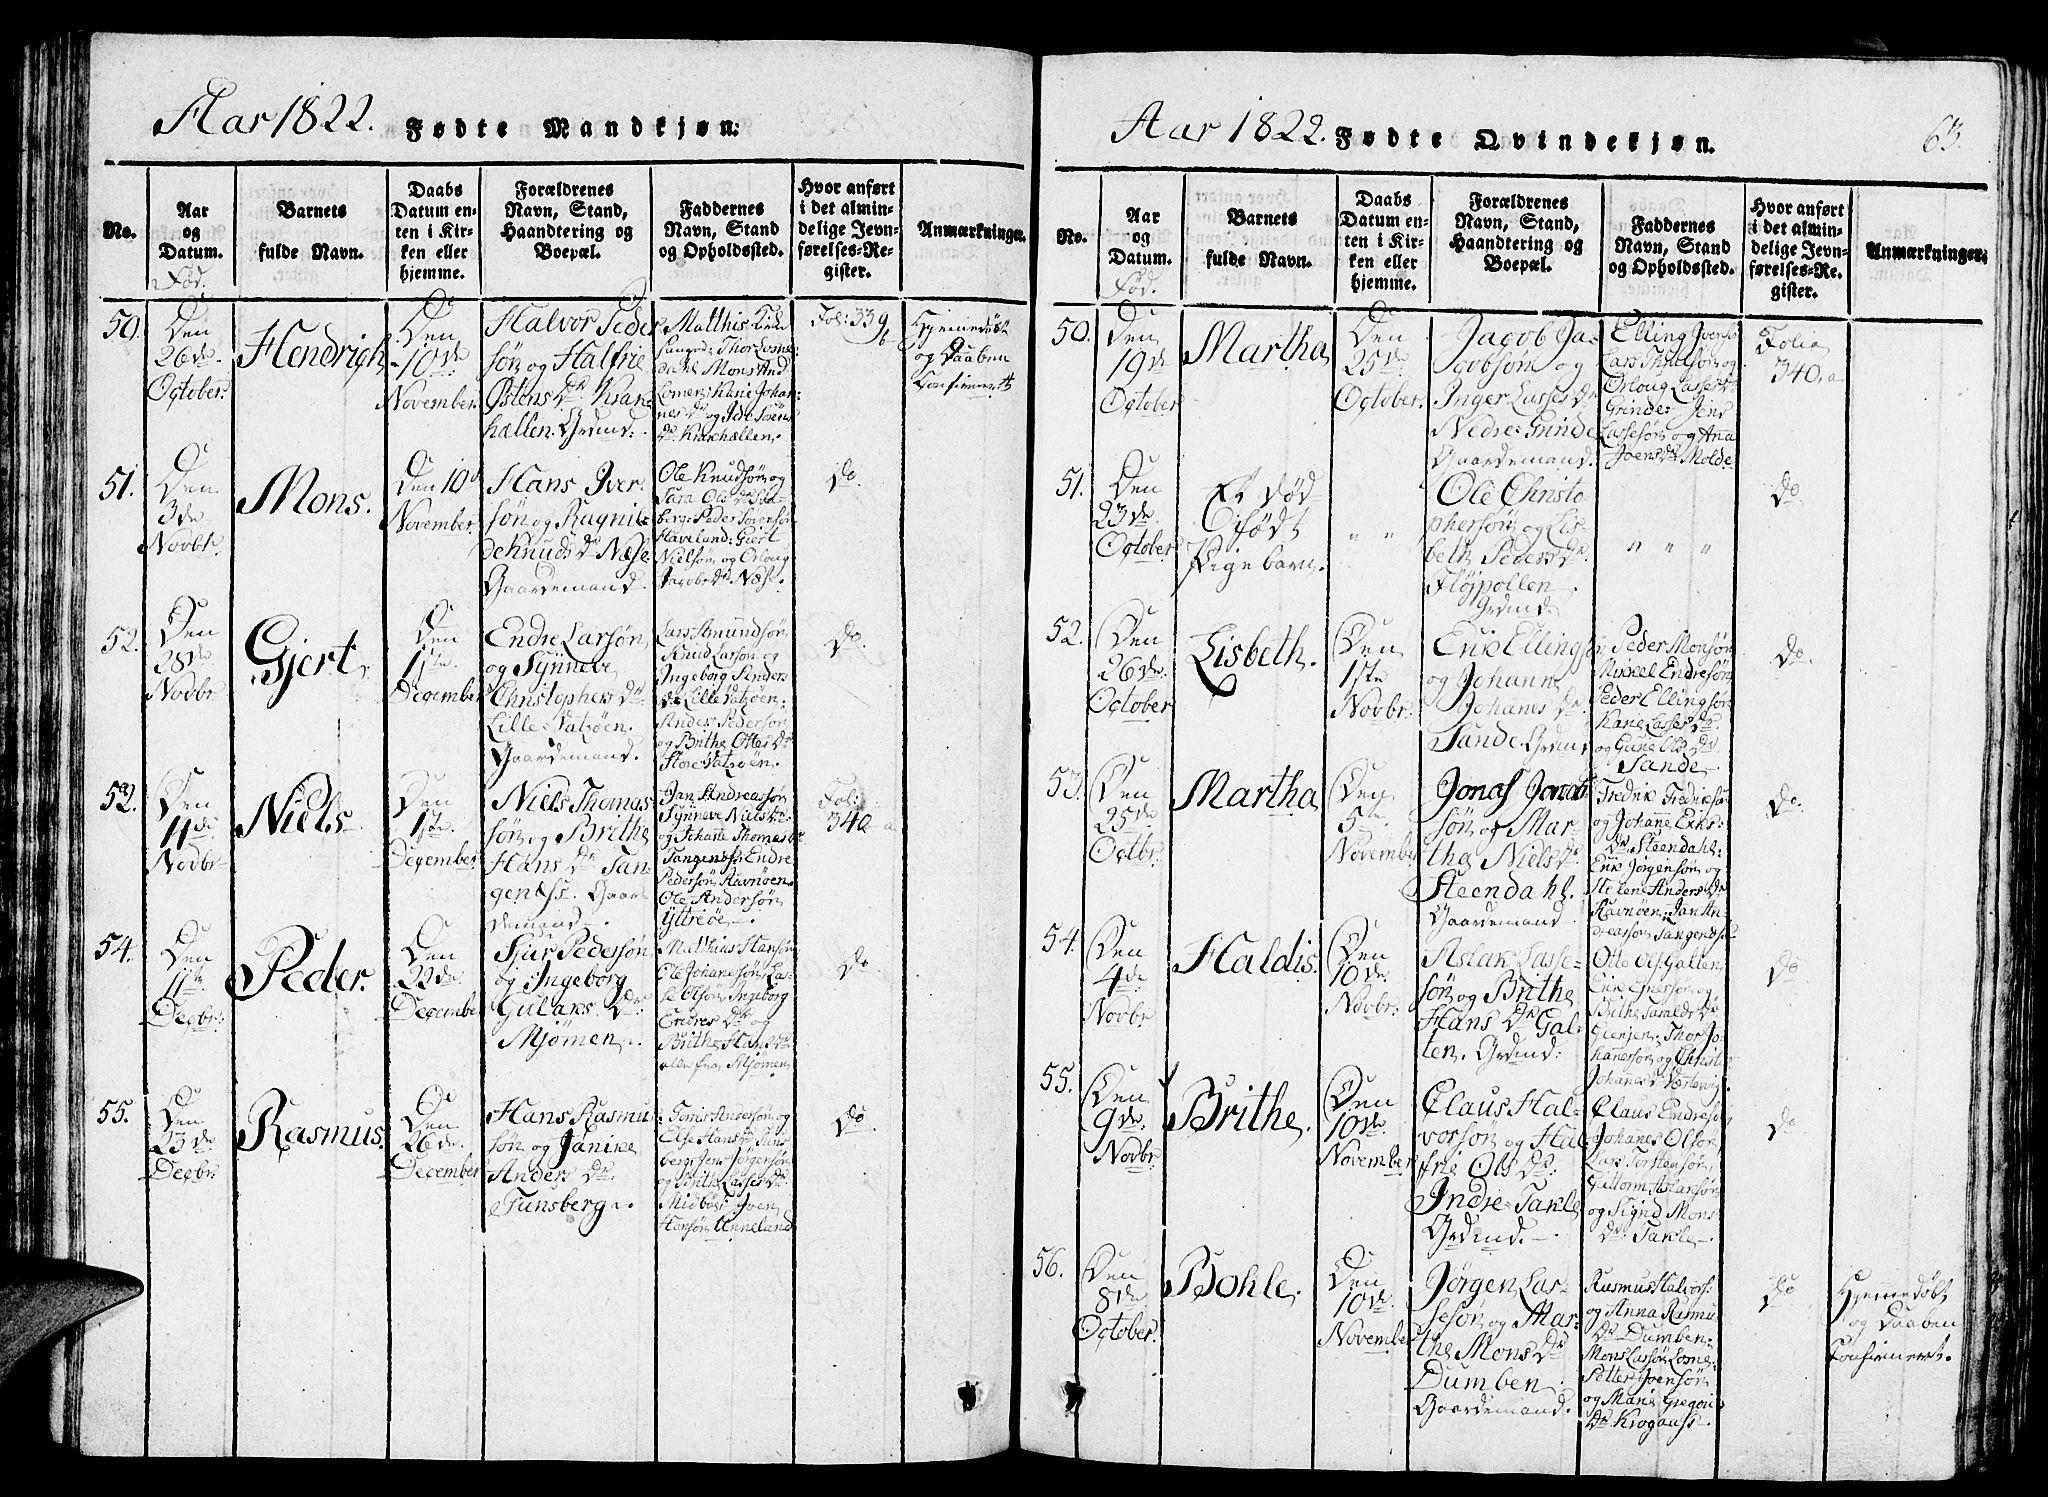 Aar 1822. Fødte Mandkjøn:
No.
Aar
og
Datum.
Fød.
Barnets
fulde Navn.
Daabs
Datum en-
ten i Kir-
ken eller
hjemme.
Forældrenes
Navn, Stand,
Haandtering og
Boepæl.
Faddernes
Navn, Stand
og Opholdssted.
Hvor anført
i det almin-
delige Jevn-
førelses-Re-
gister.
Anmærkninger.
50.
Den
26de
October.
Hendrich
Den
10de
November.
Halvor Peder
søn og Halfrie
Østens Dr. Krake
hællen. Grdmd:
Matthis
Johan-
nes Dr og
Dr. Krakhællen.
Fol: 339 b
Hjemmedøbt
og Daaben
Confirmert
51.
Den
3de
Novbr.
Mons.
Den 10de
November.
Hans Iver-
søn og Ragnil-
de Knuds Dr Næse
Gaardemand.
Ole Knudsøn og
Sara Ols Dr
berg: Peder Sørensøn
Haveland: Giert
Nielsøn og Orloug
Jacobs Dr. Næse.
Do.
52.
Den
28de
Novbr.
Gjert.
Den
1ste
December
Endre Larsøn
og Synneve
Christophers Dr.
Lille-Vatzøen.
Gaardemand.
Lars Amundsøn
Knud Larsøn og
Ingeborg Anders
dr. Lille Vatzøen:
Anders Pedersøn
og Brithe Ottes Dr
Store Vatzøen.
Do.
53.
Den
4de
Novbr.
Niels.
Den
1ste
December
Niels Thomas-
søn og Brithe
Hans Dr Tan-
genæss. Gaar-
demand.
Jan Andreassøn
Synneve Niels Dr.
og Johane Thomas Dr
Tangenæss: Endre
Pedersøn Ravnøen
Ole Andersøn
Yttreøe.
Fol:
340 a
54.
Den
11te
Decbr:
Peder.
Den
22de
December
Siur Pedersøn
og Ingeborg
Gulaks Dr.
Mjømen.
Matthias Hansøn
Ole Johanesøn Las-
se Olsøn Ingeborg
Endres Dr og
Brithe Hans Dr
alle fra Mjømen
Do
55.
Den
23de
Decbr.
Rasmus.
Den
26de
December
Hans Rasmu-
søn og Janike
Anders Dr.
Tunsberg.
Andersøn og
Else Hans Dr Tuns
berg: Jens Jørgensøn
og Brithe Lasses Dr.
Midbøe: Iver
Hansøn Anneland
Do
Aar 1822. Fødte Qvindekjøn.
63.
No.
Aar
og
Datum.
Fød.
Barnets
fulde Navn.
Daabs
Datum en-
ten i Kir-
ken eller
hjemme.
Forældrenes
Navn, Stand,
Haandtering og
Boepæl.
Faddernes
Navn, Stand
og Opholdssted.
Hvor anført
i det almin-
delige Jevn-
førelses-Re-
gister.
Anmærkninger.
50.
Den
19de
October
Martha
Den
25de
October.
Jacob Ja-
cobsøn og
Inger Lasses Dr
Nedre-Grinde
Gaardemand.
Elling Iversø
Lars og
Orloug Lasses Dr
Grinde: Jens
Lassesøn og Anna
Joens Dr Molde
Folio
340. a
51.
Den
23de
October
Et død-
født
Pigebarn.
" "
Ole Christo
phersøn og Lis
beth Peders Dr.
Fløjpollen
Grdmd.
" " "
Do
52.
Den
26de
October
Lisbeth.
Den
1ste
Novbr:
Erik Ellingsø
og Johann
Johanes Dr.
Sande. Grdmd
Peder Monsøn
Mikkel Endresøn
Peder Ellingsøn
Kane Lasses Dr
og Gune Ols Dr
Sande
Do.
53.
Den
25de
Octbr.
Martha
Den
5te
November
Jonas Jonas
søn og Mar-
the Niels Dr.
Steendahl.
Gaardemand
Fredrik Fredriksøn
og Johanne Eriks
Dr. Steendahl:
Erik Jørgensøn og
Helene Anders Dr
Ravnøen: Jan An-
dreassøn Tangenæss
Do.
54.
Den
4de
Novbr
Haldis.
Den
10de
Novbr:
Aslak Lasse-
søn og Brithe
Hans Dr Gal-
ten. Grdmd:
Otto Ols. Galten
Erik og
Brithe Dr
Glenjen: Thor Jo-
hanesøn og Christi
Johanes Dr
Do
55.
Den
9de
Novbr.
Brithe.
Den
10de
November
Claus Hal-
vorsøn og Hal-
frie Ols Dr.
Indre-Takle
Grdmd.
Claus Endresøn
Johanes Olsøn
Lars Torstensøn
Guttorm Aslaksøn
og Signd Mons
Dr. Takle
Do.
56.
Den
8de
October.
Bohle.
Den
10de
November
Jørgen Las-
sesøn og Mar-
the Mons Dr
Dumben
Gaardemand.
Rasmus Halvors:
og Anna Rasmu
Dr Dumben:
Mons Larsøn Losne:
Petter Joensøn
og Marie Gregori
Dr. Krogaas
Do
Hjemmedøbt
og Daaben
Confirmert.